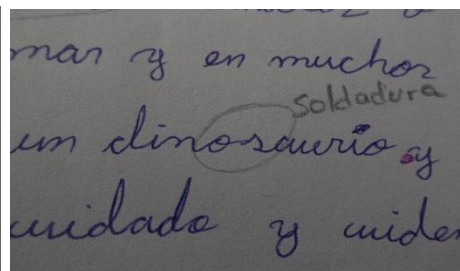 mar y en muchos
soldadura
un dinosaurio y
cuidado y cuide